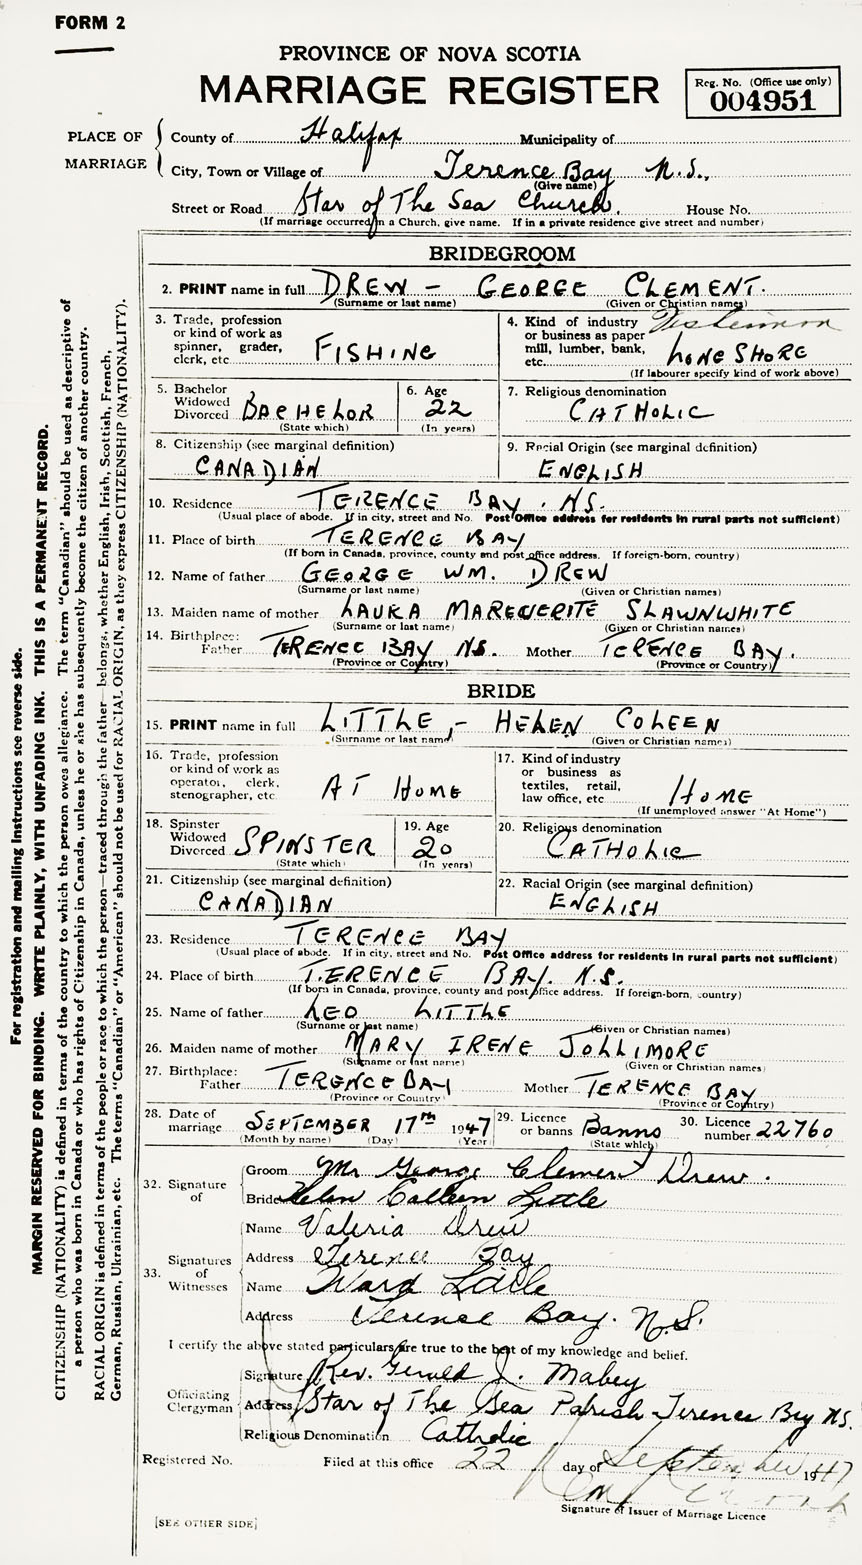 FORM 2
PROVINCE OF NOVA SCOTIA
MARRIAGE REGISTER
Reg. No. (Office use only)
004951
PLACE OF MARRIAGE
County of Halifax Municipality of
City, Town or Village of Terence Bay N.S.,
(Give name)
Street or Road Star of The Sea Church. House No.
(If marriage occurred in a Church, give name. If in a private residence give street and number)
BRIDEGROOM
2. PRINT name in full DREW - GEORGE CLEMENT.
(Surname or last name) (Given or Christian names)
3. Trade, profession or kind of work as spinner, grader, clerk, etc. FISHING
4. Kind of industry or business as paper mill, lumber, bank, etc. LONG SHORE
(If labourer specify kind of work above)
5. Bachelor Widowed Divorced BACHELOR
(State which)
6. Age 22
(In years)
7. Religious denomination
CATHOLIC
8. Citizenship (see marginal definition)
CANADIAN
9. Racial Origin (see marginal definition)
ENGLISH
10. Residence TERENCE BAY. NS.
(Usual place of abode. If in city, street and No. Post Office address for residents in rural parts not sufficient)
11. Place of birth TERENCE BAY
(If born in Canada, province, county and post office address. If foreign-born, country)
12. Name of father GEORGE WM. DREW
(Surname or last name) (Given or Christian names)
13. Maiden name of mother LAURA MARGUERITE SLAWNWHITE
(Surname or last name) (Given or Christian names)
14. Birthplace: Father TERENCE BAY NS. Mother TERENCE BAY.
(Province or Country) (Province or Country)
BRIDE
15. PRINT name in full LITTLE,- HELEN COLEEN
(Surname or last name) (Given or Christian names)
16. Trade, profession or kind of work as operator, clerk, stenographer, etc. AT HOME
17. Kind of industry or business as textiles, retail, law office, etc HOME
(If unemployed answer "At Home")
18. Spinster Widowed Divorced SPINSTER
(State which)
19. Age 20
(In years)
20. Religious denomination
CATHOLIC
21. Citizenship (see marginal definition)
CANADIAN
22. Racial Origin (see marginal definition)
ENGLISH
23. Residence TERENCE BAY
(Usual place of abode. If in city, street and No. Post Office address for residents in rural parts not sufficient)
24. Place of birth TERENCE BAY. N.S.
(If born in Canada, province, county and post office address. If foreign-born, country)
25. Name of father LEO LITTLE
(Surname or last name) (Given or Christian names)
26. Maiden name of mother MARY IRENE JOLLIMORE
(Surname or last name) (Given or Christian names)
27. Birthplace: Father TERENCE BAY Mother TERENCE BAY
(Province or Country) (Province or Country)
28. Date of marriage SEPTEMBER 17th 1947
(Month by name) (Day) (Year)
29. Licence or banns Banns
(State which)
30. Licence number 22760
32. Signature of
Groom Mr George Clement Drew.
Bride Helen Colleen Little
33. Signatures of Witnesses
Name Valeria Drew
Address Terence Bay
Name Ward Little
Address Terence Bay. N.S.
I certify the above stated particulars are true to the best of my knowledge and belief.
Officiating Clergyman
Signature Rev. Gerald J. Mabey
Address Star of The Sea Parish - Terence Bay NS.
Religious Denomination Catholic
Registered No. Filed at this office 22 day of September 1947
Signature of Issuer of Marriage Licence
[SEE OTHER SIDE]
For registration and mailing instructions see reverse side.
MARGIN RESERVED FOR BINDING. WRITE PLAINLY, WITH UNFADING INK. THIS IS A PERMANENT RECORD.
CITIZENSHIP (NATIONALITY) is defined in terms of the country to which the person owes allegiance. The term "Canadian" should be used as descriptive of
a person who was born in Canada or who has rights of Citizenship in Canada, unless he or she has subsequently become the citizen of another country.
RACIAL ORIGIN is defined in terms of the people or race to which the person—traced through the father—belongs, whether English, Irish, Scottish, French,
German, Russian, Ukrainian, etc. The terms "Canadian" or "American" should not be used for RACIAL ORIGIN, as they express CITIZENSHIP (NATIONALITY).